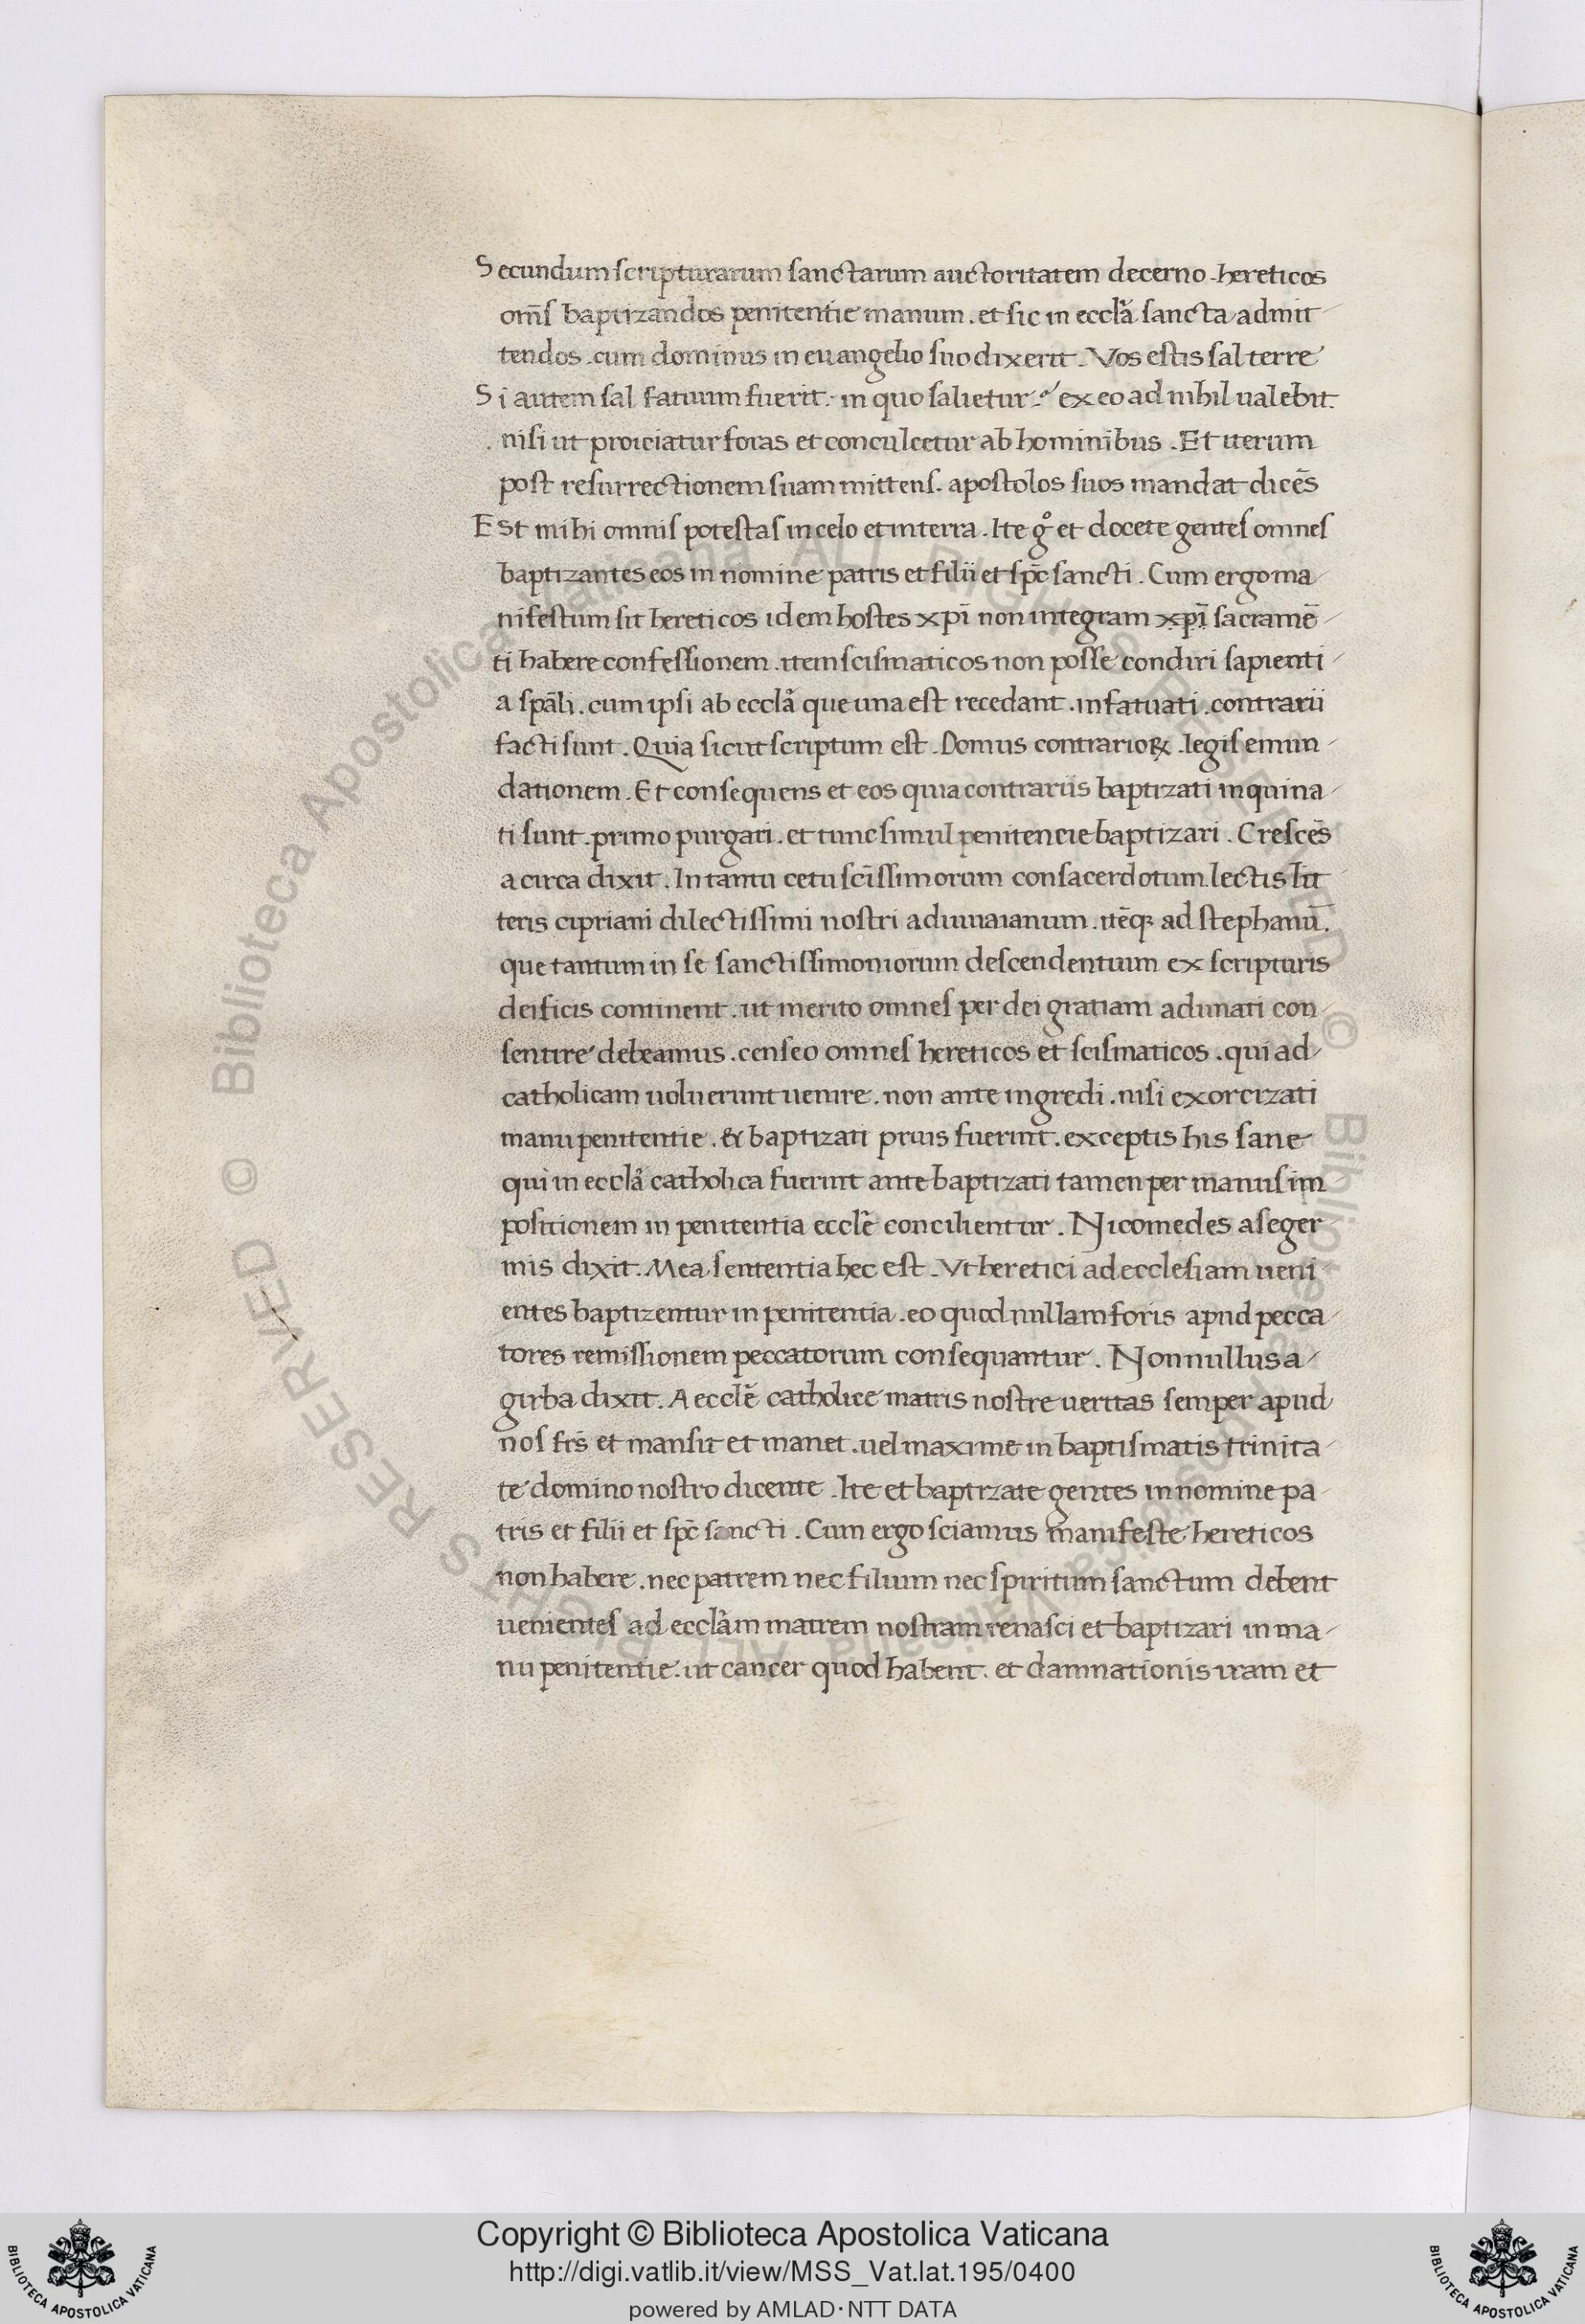 Secundum scripturarum sanctarum auctoritatem decerno. hereticos
oms̄ baptizandos penitentie manum. et sic in ecclā sancta admit
tendos. cum dominus in euangelio suo dixerit. Vos estis sal terre
Si autem sal fatuum fuerit. in quo salietur. ex eo ad nihil ualebit.
nisi ut proiciatur foras et conculcetur ab hominibus. Et iterum
post resurrectionem suam mittens. apostolos suos mandat dicēs
Est mihi omnis potestas in celo et in terra. Ite gͦ et docete gentes omnes
baptizantes eos in nomine patris et filii et spc̄ sancti. Cum ergo ma
nifestum sit hereticos idem hostes xpī non integram xpī sacramē
ti habere confessionem. item scismaticos non posse condiri sapienti
a spāli. cum ipsi ab ecclā que una est recedant. infatuati. contrarii
facti sunt. Quia sicut scriptum est. Domus contrarioꝝ. legis emun
dationem. Et consequens et eos quia contrariis baptizati inquina
ti sunt. primo purgari. et tunc simul penitencie baptizari. Crescēs
a circa dixit. In tantu cetu scīssimorum consacerdotum lectis lit
teris cipriani dilectissimi nostri ad iuuaianum. itēqꝫ ad stephanū.
que tantum in se sanctissimoniorum descendentium ex scripturis
deificis continent. ut merito omnes per dei gratiam adunati con
sentire debeamus. censeo omnes hereticos et scismaticos. qui ad
catholicam uoluerunt uenire. non ante ingredi. nisi exorcizati
manu penitentie. & baptizati prius fuerint. exceptis his sane
qui in ecclā catholica fuerint ante baptizati tamen per manus im
positionem in penitentia ecclē concilientur. Nicomedes a seger
mis dixit. Mea sententia hec est. Vt heretici ad ecclesiam ueni
entes baptizentur in penitentia. eo quod nullam foris apud pecca
tores remissionem peccatorum consequantur. Nonnullus a
girba dixit. A ecclē catholice matris nostre ueritas semper apud
nos frs̄ et mansit et manet. uel maxime in baptismatis trinita
te domino nostro dicente. Ite et baptizate gentes in nomine pa
tris et filii et spc̄ sancti. Cum ergo sciamus manifeste hereticos
non habere. nec patrem nec filium nec spiritum sanctum debent
uenientes ad ecclām matrem nostram renasci et baptizari in ma
nu penitentie. ut cancer quod habent. et damnationis iram et
Copyright © Biblioteca Apostolica Vaticana
http://digi.vatlib.it/view/MSS_Vat.lat.195/0400
powered by AMLAD·NTT DATA